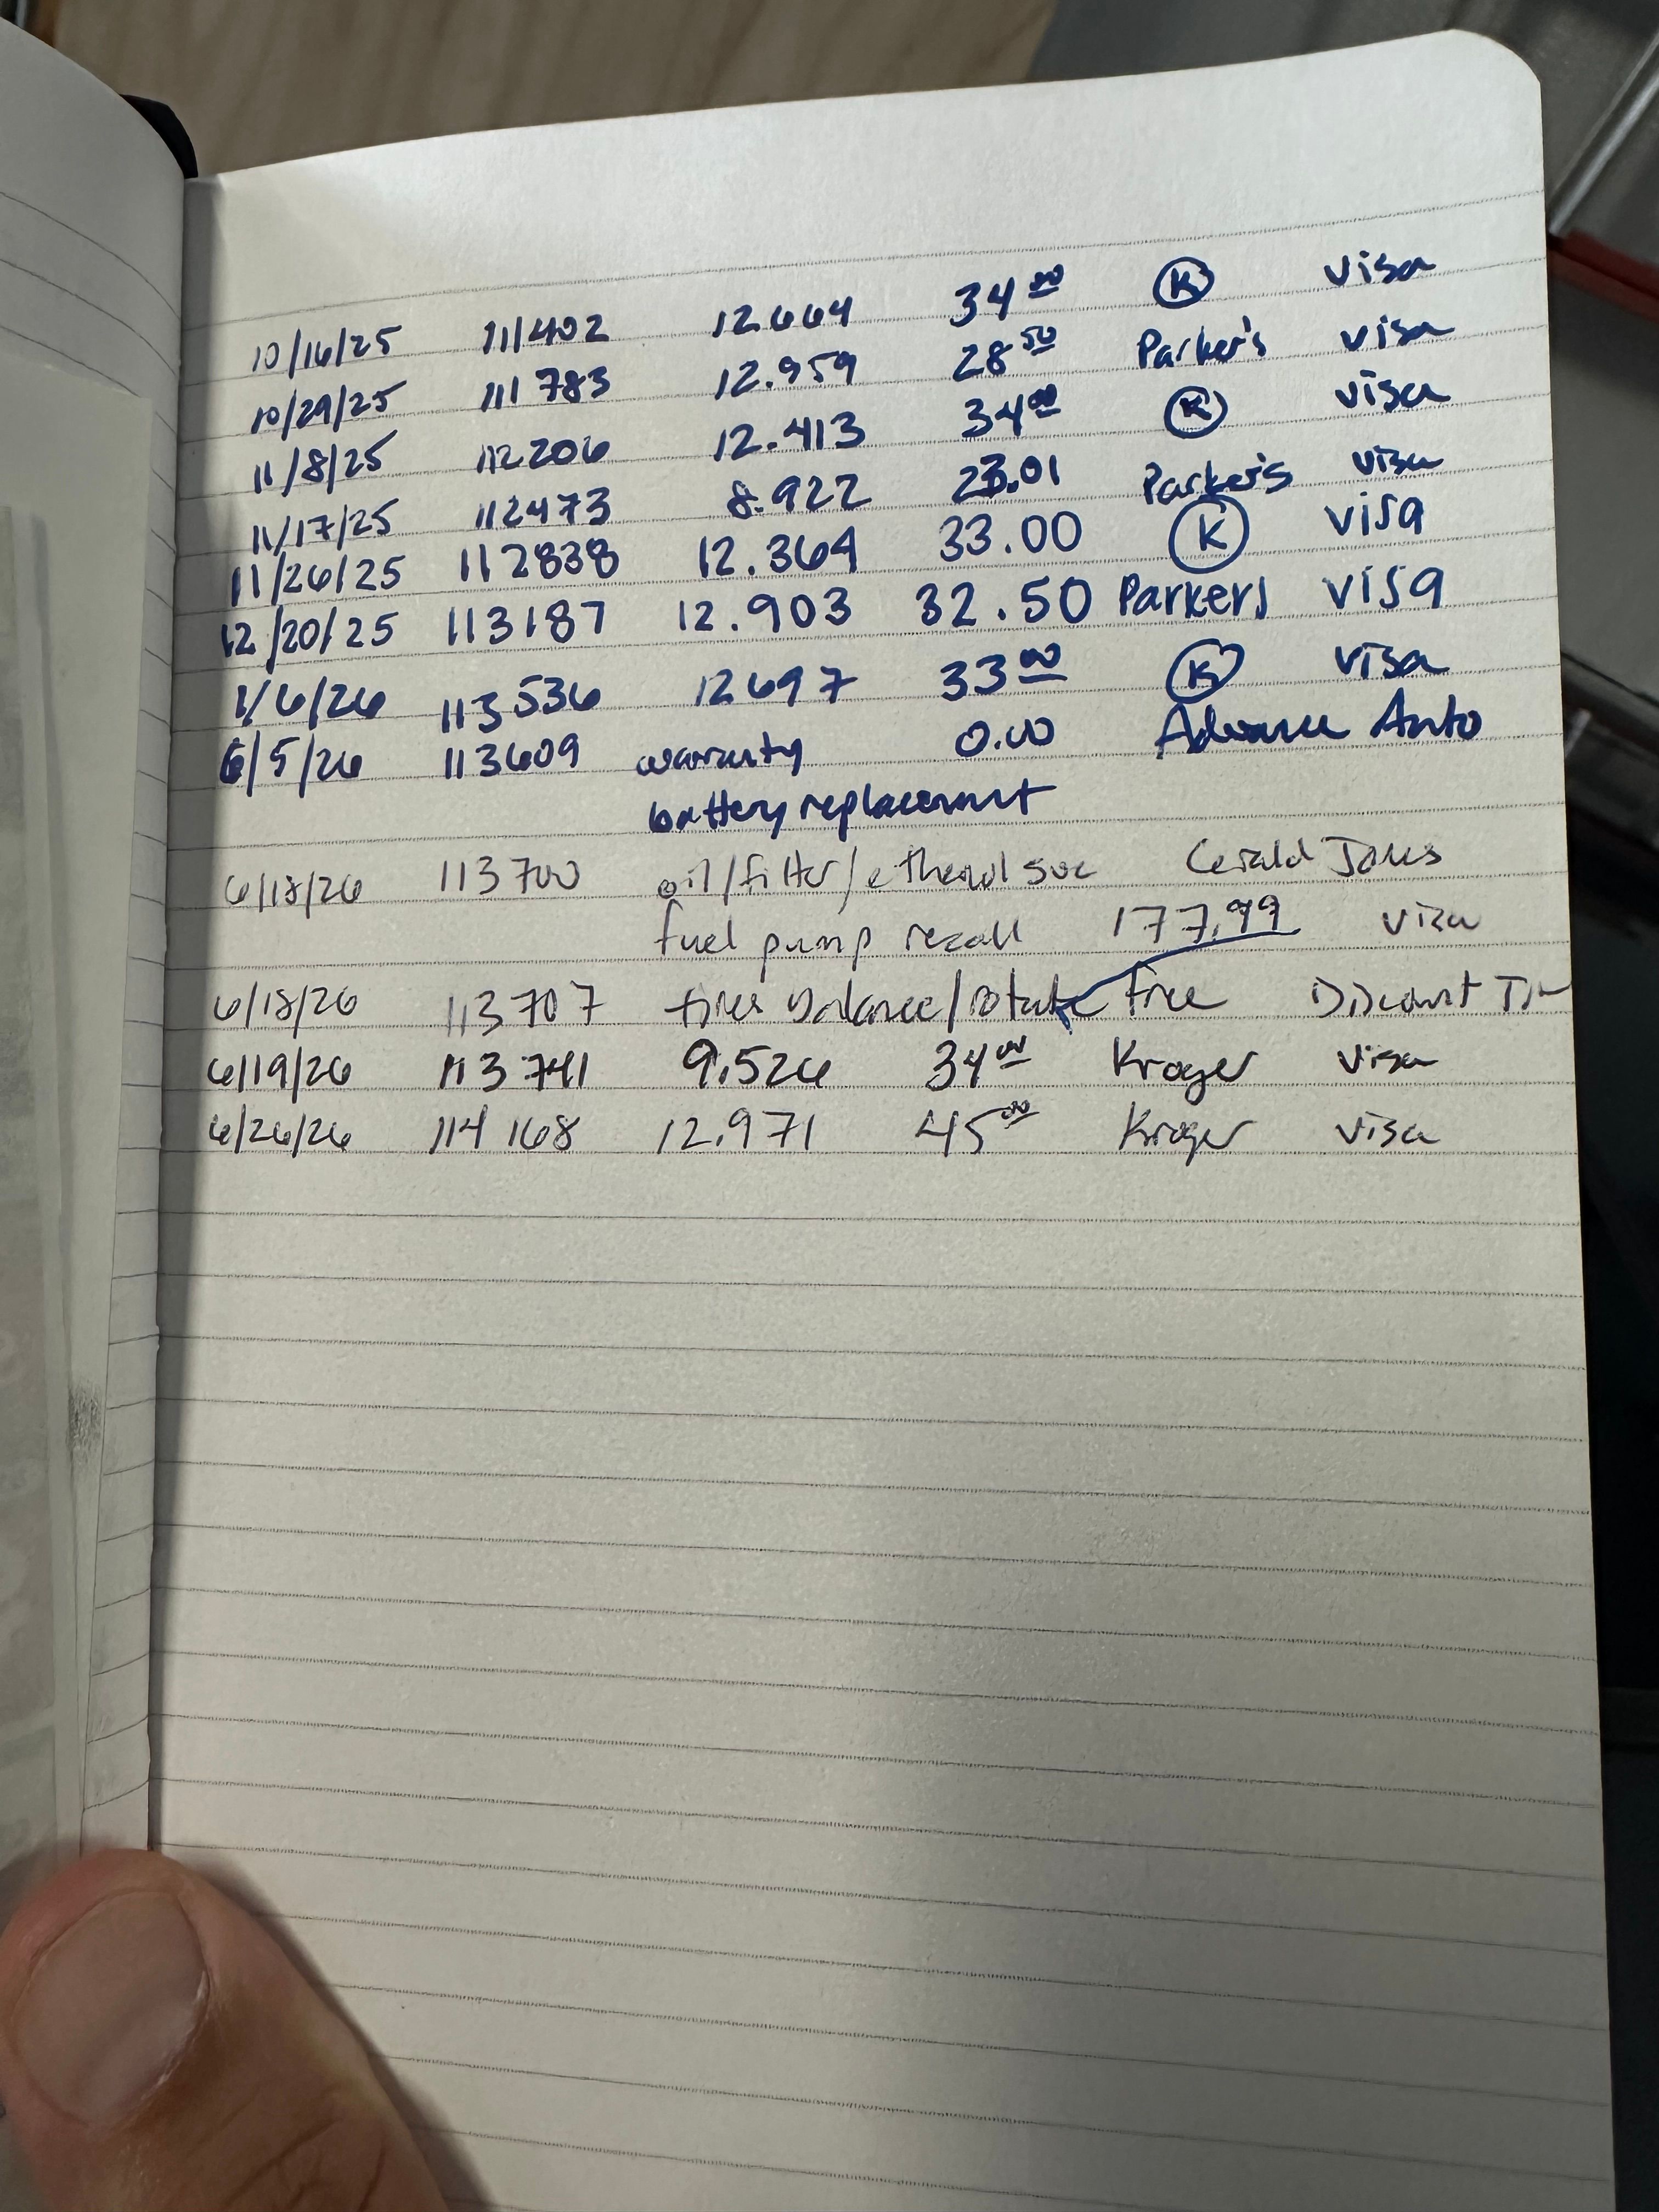 10/16/25 111402 12.664 34.00 K visa
10/29/25 111783 12.959 28.50 Parker's visa
11/8/25 112206 12.413 34.00 K visa
11/17/25 112473 8.922 23.01 Parker's visa
11/26/25 112838 12.364 33.00 K visa
12/20/25 113187 12.903 32.50 Parkers visa
1/6/26 113536 12.697 33.00 K visa
6/5/26 113609 warranty 0.00 Advance Auto
battery replacement
6/18/26 113700 oil/filter/ethanol svc Gerald Jones
fuel pump recall 177.99 visa
6/18/26 113707 tires balance/rotate free Discount Tire
6/19/26 113741 9.526 34.00 Kroger visa
6/26/26 114168 12.971 45.00 Kroger visa